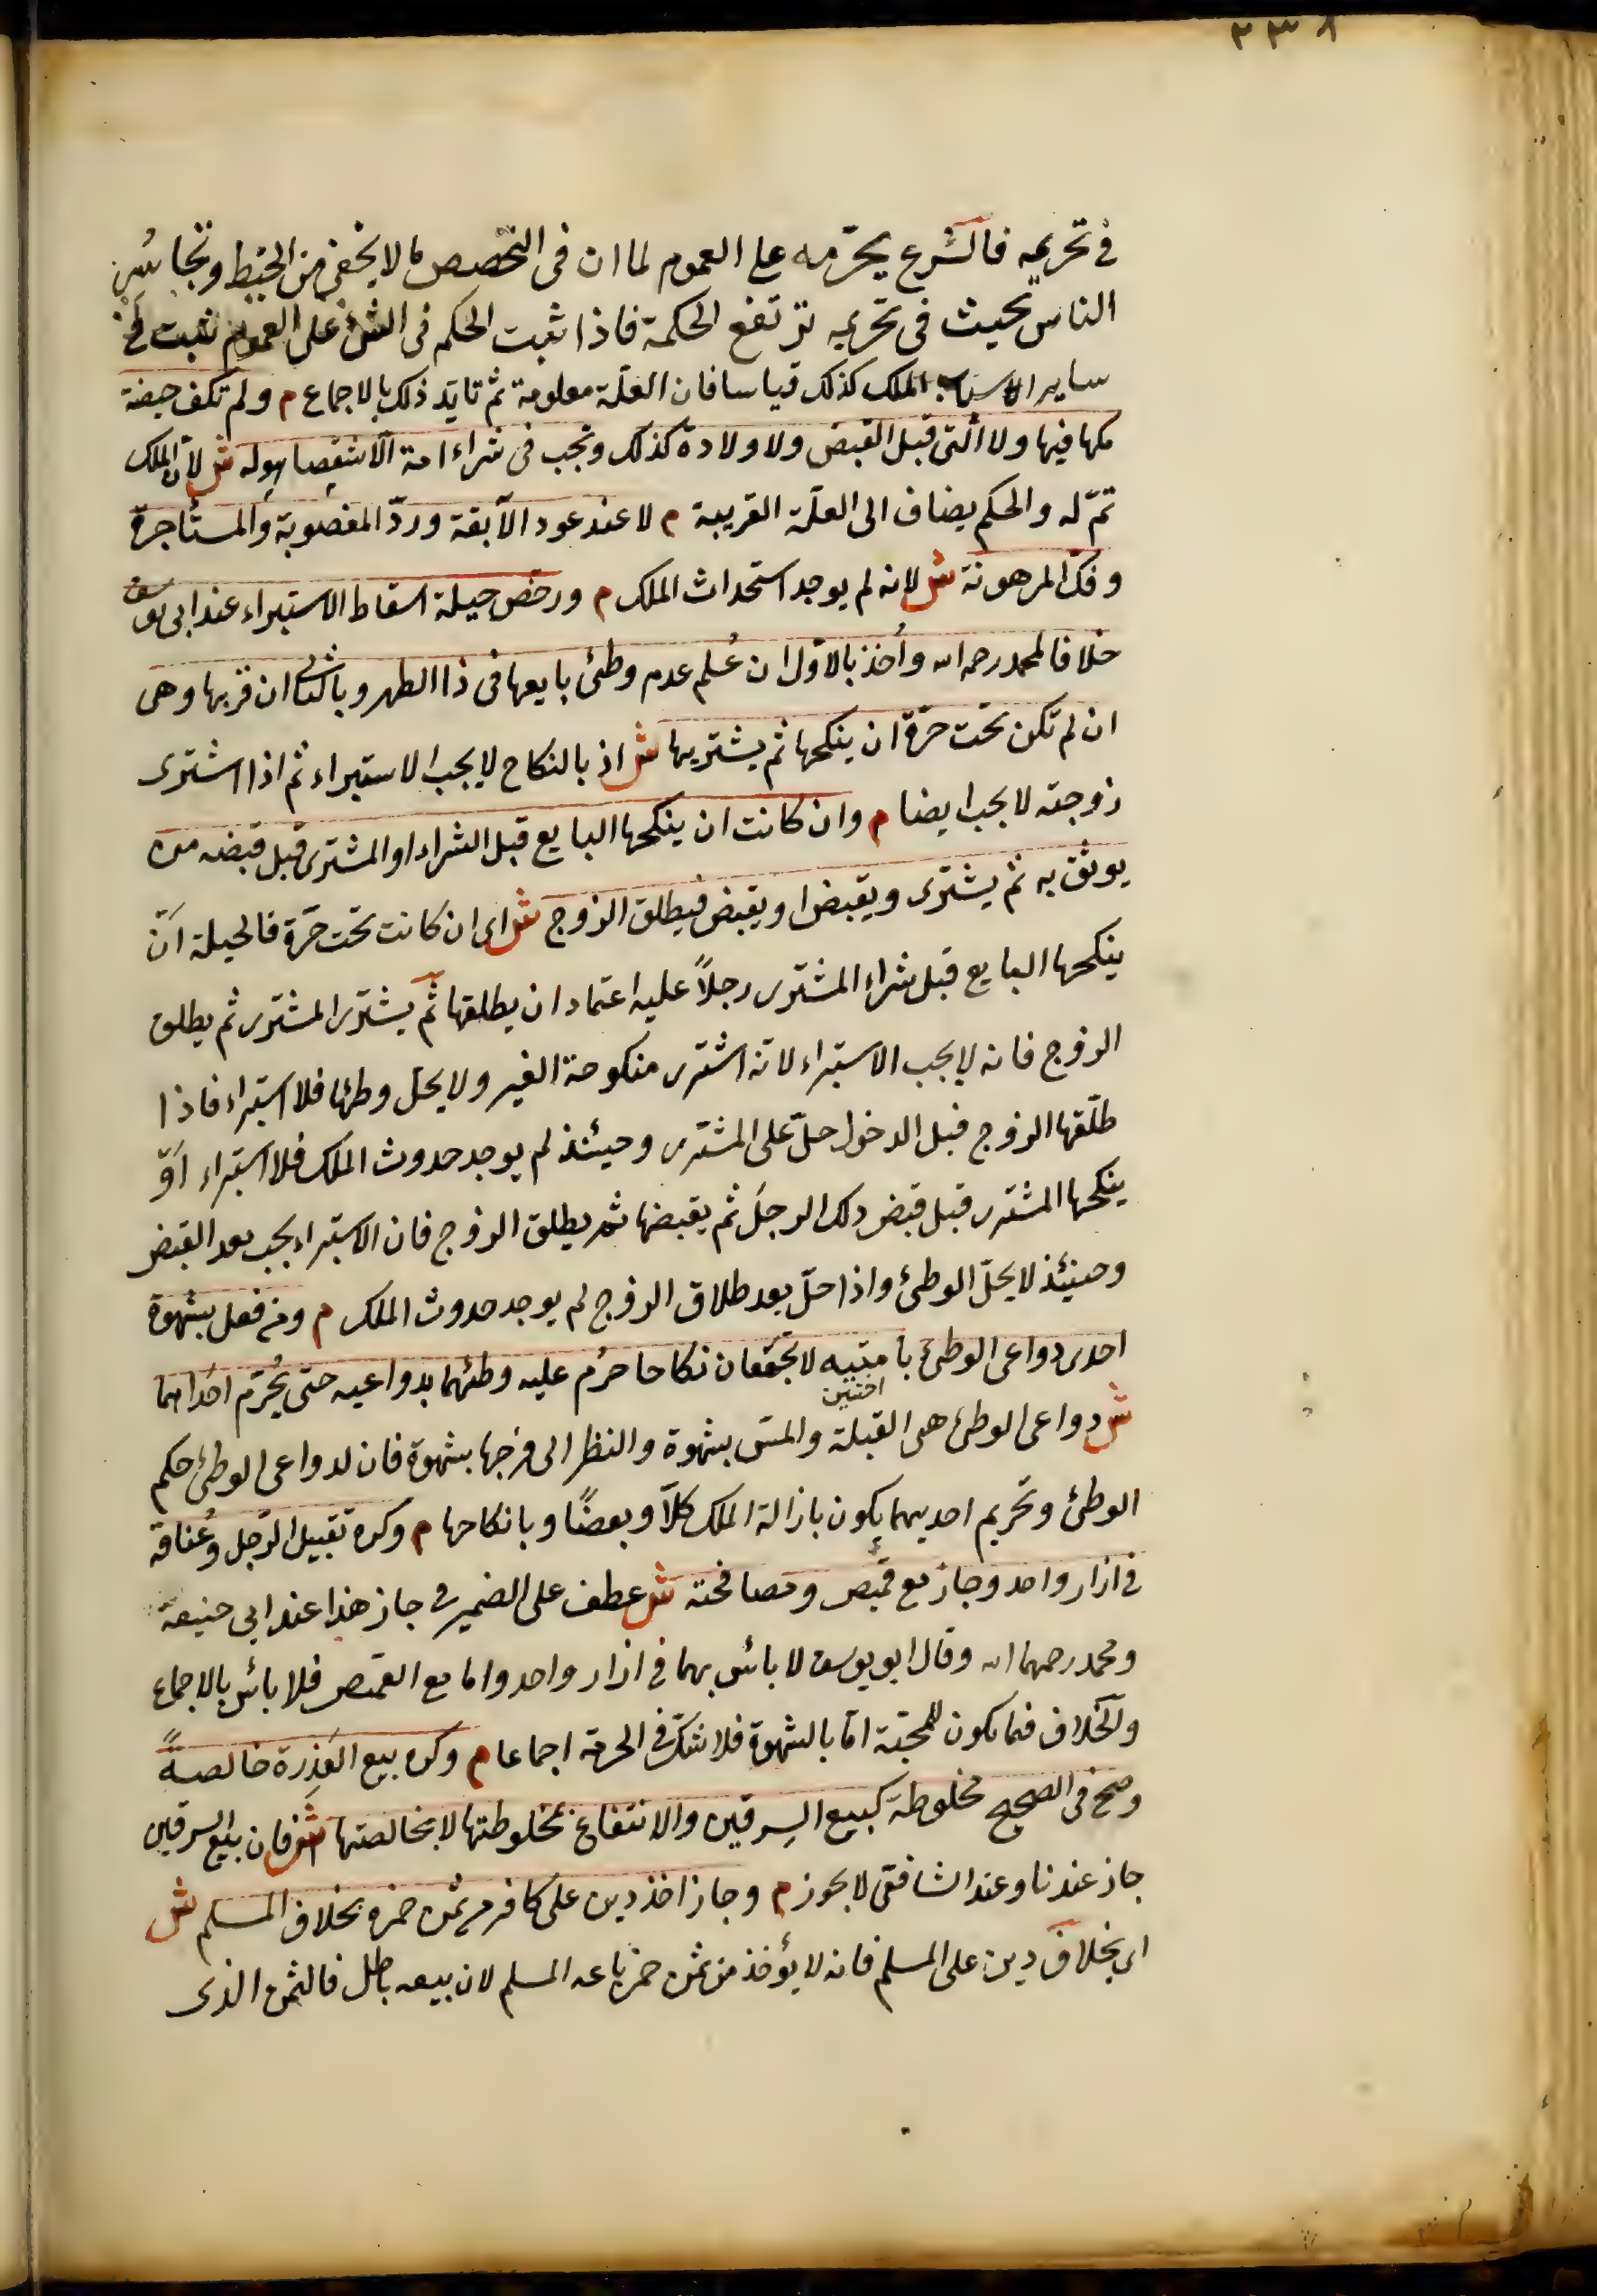 ٣٣٨
في تحريمه فالشرع يحرّمه على العموم لما ان فى التخصيص ما لا يخفى من الخبط وتجاسُر
الناس بحيث فى تحريمه ترتفع الحكمة فاذا ثبت الحكم فى الشئ على العموم ثبت فى
ساير اسباب الملك كذلك قياسا فان العلّة معلومة ثم تايّد ذلك بالاجماع م ولم تكف حيضة
ملكها فيها ولا التى قبل القبض ولا ولادة كذلك وتجب فى شراء امة الا شقصا هو له ش لان الملك
تمّ له والحكم يضاف الى العلّة القريبة م لا عند عود الآبقة وردّ المغصوبة والمستأجرة
وفكّ المرهونة ش لانه لم يوجد استحداث الملك م ورخص حيلة اسقاط الاستبراء عند ابى يوسف
خلافا لمحمد رحمه الله وأخذ بالاوّل ان عُلم عدم وطئ بايعها فى ذا الطهر وبالثانى ان قربها وهى
ان لم تكن تحت حرّة ان ينكحها ثم يشتريها ش اذ بالنكاح لا يجب الاستبراء ثم اذا اشترى
زوجته لا يجب ايضا م وان كانت ان ينكحها البايع قبل الشراء او المشترى قبل قبضه من
يوثق به ثم يشترى ويقبض او يقبض فيطلق الزوج ش اى ان كانت تحت حرّة فالحيلة ان
ينكحها البايع قبل شراء المشترى رجلاً عليه اعتماد ان يطلقها ثم يشترى المشترى ثم يطلق
الزوج فانه لا يجب الاستبراء لانه اشترى منكوحة الغير ولا يحل وطئها فلا استبراء فاذا
طلّقها الزوج قبل الدخول حلّ على المشترى وحينئذ لم يوجد حدوث الملك فلا استبراء اوّ
ينكحها المشترى قبل قبض ذلك الرجل ثم يقبضها ثم يطلق الزوج فان الاستبراء يجب بعد القبض
وحينئذ لا يحلّ الوطئ واذا حلّ بعد طلاق الزوج لم يوجد حدوث الملك م ومن فعل بشهوة
احدى دواعى الوطئ بامتيه لا تجتمعان نكاحا حرُم عليه وطئهما بدواعيه حتى يُحرّم احداهما
اختين
ش دواعى الوطئ هى القبلة والمسّ بشهوة والنظر الى فرجها بشهوة فان لدواعى الوطئ حكم
الوطئ وتحريم احديهما يكون بازالة الملك كلاّ وبعضًا وبانكاحها م وكره تقبيل الرّجل وعُناقه
فى ازار واحد وجاز مع قميص ومصافحته ش عطف على الضمير فى جاز هذا عند ابى حنيفة
ومحمد رحمهما الله وقال ابو يوسف لا بائس بهما فى ازار واحد واما مع القميص فلا بائس بالاجماع
والخلاف فيما يكون للمحبّة امّا بالشهوة فلا شكّ فى الحرمة اجماعا م وكره بيع العَذِرة خالصةً
وصحّ فى الصحيح مخلوطة كبيع السرقين والانتفاع بمخلوطتها لا بخالصتها ش فان بيع السرقين
جاز عندنا وعند الشافعى لا يجوز م وجاز اخذ دين على كافر من ثمن خمره بخلاف المسلم ش
اى بخلاف دين على المسلم فانه لا يؤخذ من ثمن خمر باعه المسلم لان بيعه باطل فالثمن الذى